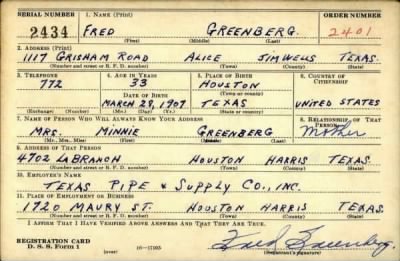 SERIAL NUMBER 1. NAME (Print) ORDER NUMBER
2434 FRED GREENBERG. 2401
(First) (Middle) (Last)
2. ADDRESS (Print)
1117 GRISHAM ROAD ALICE JIM WELLS TEXAS.
(Number and street or R. F. D. number) (Town) (County) (State)
3. TELEPHONE 4. AGE IN YEARS 5. PLACE OF BIRTH 6. COUNTRY OF CITIZENSHIP
772 33 HOUSTON
DATE OF BIRTH (Town or county)
MARCH 28, 1907 TEXAS UNITED STATES
(Exchange) (Number) (Mo.) (Day) (Yr.) (State or country)
7. NAME OF PERSON WHO WILL ALWAYS KNOW YOUR ADDRESS 8. RELATIONSHIP OF THAT PERSON
MRS. MINNIE GREENBERG Mother
(Mr., Mrs., Miss) (First) (Middle) (Last)
9. ADDRESS OF THAT PERSON
4702 LABRANCH HOUSTON HARRIS TEXAS.
(Number and street or R. F. D. number) (Town) (County) (State)
10. EMPLOYER'S NAME
TEXAS PIPE & SUPPLY CO., INC.
11. PLACE OF EMPLOYMENT OR BUSINESS
1720 MAURY ST. HOUSTON HARRIS TEXAS.
(Number and street or R. F. D. number) (Town) (County) (State)
I AFFIRM THAT I HAVE VERIFIED ABOVE ANSWERS AND THAT THEY ARE TRUE.
REGISTRATION CARD
D. S. S. Form 1 (over) 16—17105 Fred Greenberg.
(Registrant's signature)